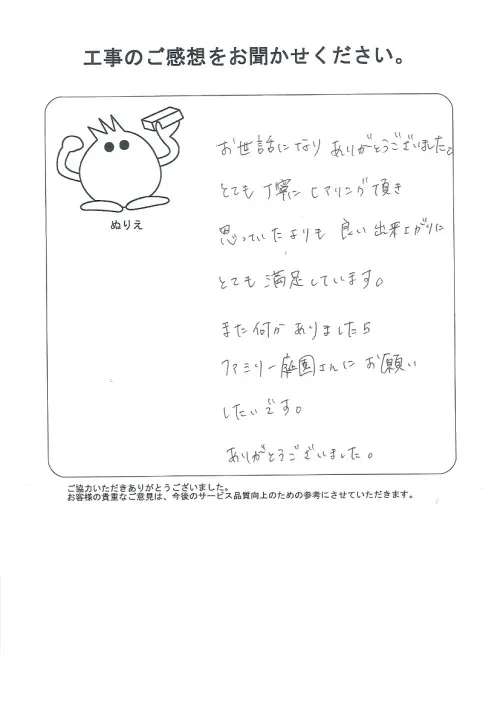 工事のご感想をお聞かせください。
ぬりえ
お世話になり ありがとうございました。
とても 丁寧に ヒアリング頂き
思っていたよりも 良い出来上がりに
とても 満足しています。
また何か ありましたら
ファミリー庭園さんに お願い
したいです。
ありがとうございました。
ご協力いただきありがとうございました。
お客様の貴重なご意見は、今後のサービス品質向上のための参考にさせていただきます。